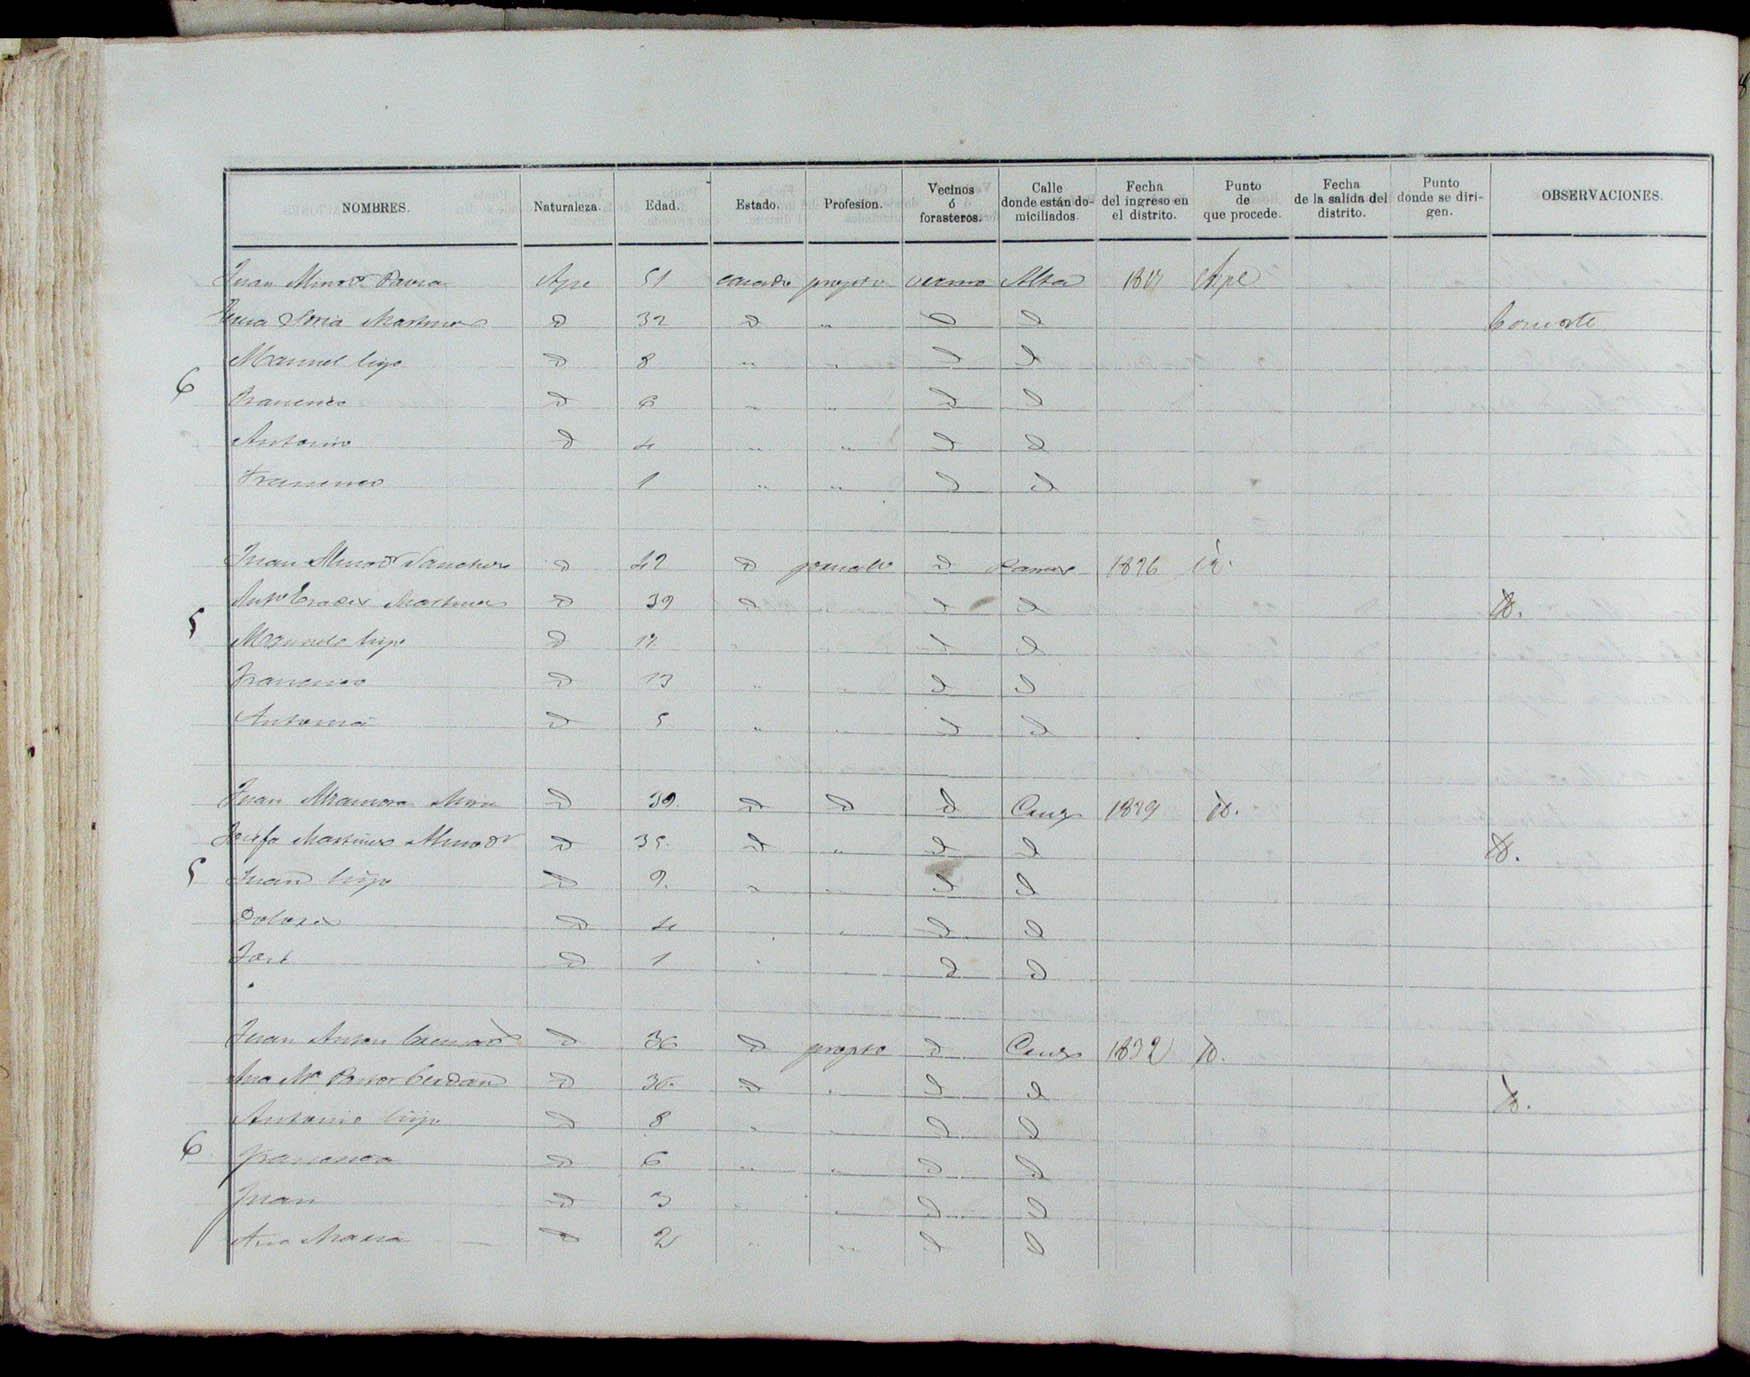 NOMBRES. Naturaleza. Edad. Estado. Profesion. Vecinos ó forasteros. Calle donde están domiciliados. Fecha del ingreso en el distrito. Punto de que procede. Fecha de la salida del distrito. Punto donde se dirigen. OBSERVACIONES.
Juan Almodr Aspe 51 casado propto vecino Alta Aspe
Soria Martinez D 32 D " D D Consorte
Manuel hijo D 8 " " D D
6
Francisco D 6 " " D D
Antonio D 4 " " D D
Francisco 1 " " D D
Juan Almodr Sanchez D 42 D D 1826 id.
Martinez D 39 D " D D id.
5
hijo D 12 D
Francisco D 13 " " D D
Antonia D 5 " " D D
Juan D 39. D D D Cruz 1829 id.
Josefa Martinez Almodr D 35. D " D D id.
5
Juan hijo D 9. " " D D
Dolores D 4 " " D D
José D 1 " D D
Juan Anton D 36 D propto D Cruz 1832 id.
Ana Ma Pastor Cerdan D 36. D " D D id.
Antonio hijo D 8 " " D D
6
Francisca D 6 " " D D
Juan D 3 " " D D
Ana Maria D 2 " " D D